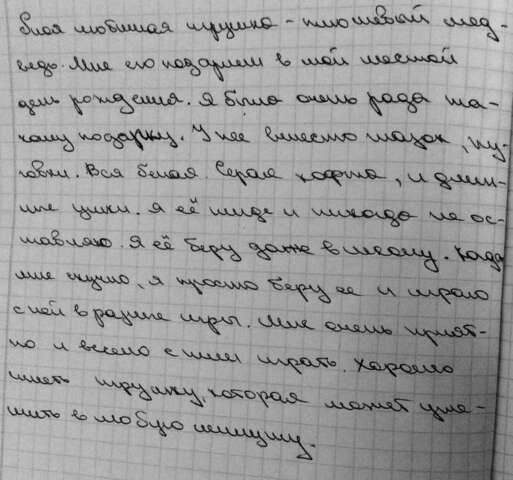 Моя любимая игрушка - плюшевый мед-
ведь. Мне его подарили в мой шестой
день рождения. Я была очень рада та-
кому подарку. У нее вместо глазок, пу-
говки. Вся белая. Серая кофта, и длин-
ные ушки. Я её нигде и никогда не ос-
тавляю. Я её беру даже в школу. Когда
мне скучно, я просто беру ее и играю
с ней в разные игры. Мне очень прият-
но и весело с ним играть. Хорошо
иметь игрушку, которая может уте-
шить в любую минуту.